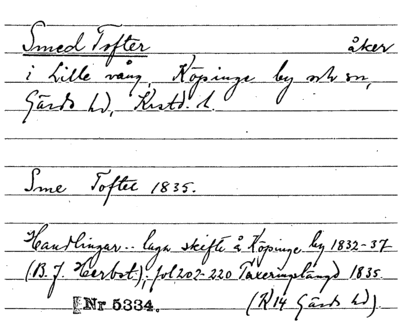 Smed Tofter åker
i Lille vång, Köpinge by och sn,
Gärds hd, Krstd. l.
Sme Toftet 1835.
Handlingar .. laga skifte å Köpinge by 1832-37
(B. J. Herbst); fol 202-220 Taxeringslängd 1835
Nr 5334. (K14 Gärds hd).